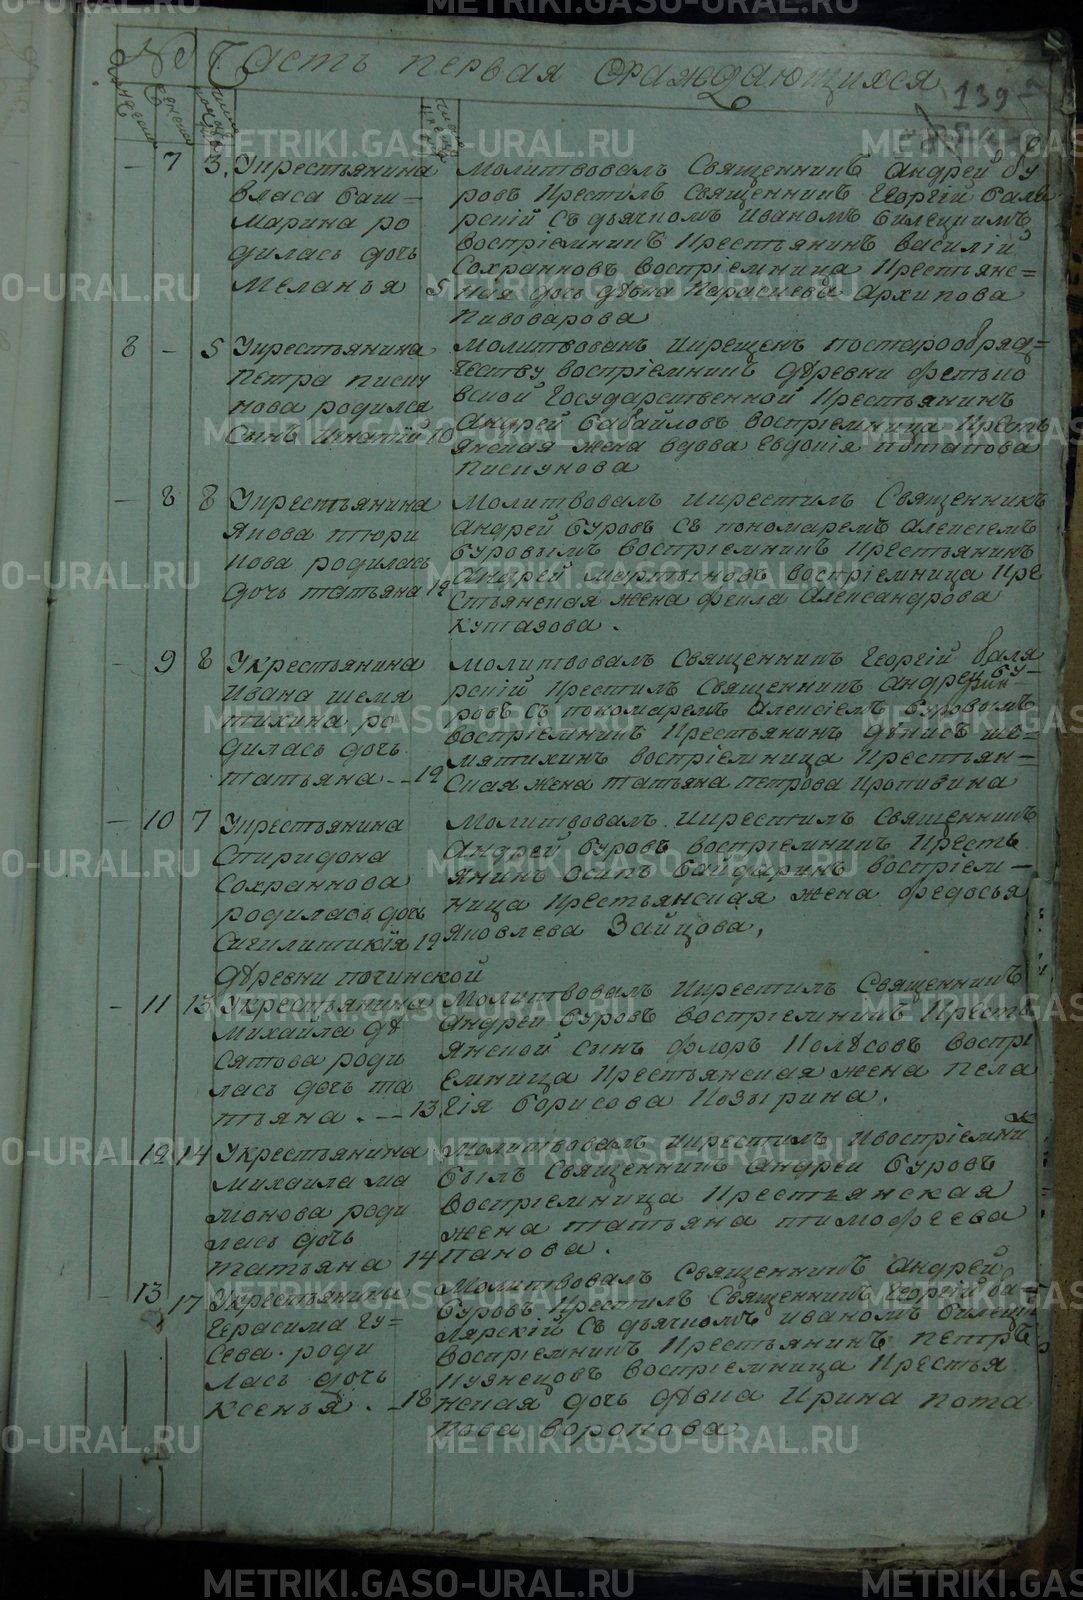 Часть первая ораждающихся
139
7 3. Укрестьянина
Власа Баш=
марина ро
дилась дочь
Меланья 5
Молитвовалъ Священникъ Андрей Бу
ровъ Крестилъ Священникъ Георгий Баля
рскій съ дьячкомъ Иваномъ Билецкимъ
Воспріемникъ Крестьянинъ Василій
Сохранновъ Воспріемница Крестьянс=
кая дочь дѣвка Параскева Архипова
Пивоварова
8 – 5 Укрестьянина
Петра Писку
нова родился
сынъ Игнатій 10
Молитвованъ икрещенъ постарообряд=
честву воспріемникъ дѣревни
вской Государственной Крестьянинъ
Андрей Бабайловъ Воспріемница Кресть
янская жена вдова Евдокія Потапова
Пискунова
– 8 8 Укрестьянина
Якова Тюри
кова родилась
дочь Татьяна 12
Молитвовалъ икрестилъ Священникъ
Андрей Буровъ съ пономаремъ Алексіемъ
Буровымъ Воспріемникъ Крестьянинъ
Андрей Мартыновъ Воспріемница Кре
стьянская жена Фекла Александрова
Кутазова.
– 9 8 Укрестьянина
Ивана Шемя
тихина ро
дилась дочь
Татьяна – – 12
Молитвовалъ Священникъ Георгій Баля
рскій Крестилъ Священникъ Андрей Бу–
ровъ съ пономаремъ Алексіемъ Буровымъ
Воспріемникъ Крестьянинъ Дѣнисъ Ше=
мятихинъ воспріемница Крестьян=
ская жена Татьяна Петрова Кропивина
– 10 7 Укрестьянина
Спиридона
Сохраннова
родилась дочь
Сигклитикія 12
Молитвовалъ икрестилъ Священникъ
Андрей Буровъ воспріемникъ Кресть
янинъ Осипъ Байдаринъ воспріем–
ница Крестьянская жена Федосья
Яковлева Зайцова,
дѣревни Починской
– 11 13 Укрестьянина
Михаила Дѣ
сятова роди
лась дочь Та
тьяна . – 13
Молитвовалъ Икрестилъ Священникъ
Андрей Буровъ воспріемникъ Кресть
янской сынъ Флоръ Колѣсовъ Воспрі
емница Крестьянская жена Пела
гія Борисова Козырина.
12 14 Укрестьянина
Михаила Ма
монова роди
лась дочь
Татьяна 14
Молитвовалъ икрестилъ Ивоспріемник
былъ Священникъ Андрей Буровъ
Воспріемница Крестьянская
жена Татьяна Тимофеева
Панова.
– 13 17 Укрестьянина
Герасима Гу=
сева. роди
лась дочь
Ксенья . – 18
Молитвовалъ Священникъ Андрей
Буровъ Крестилъ Священникъ Георгій Ба
лярскій съ дьячкомъ Иваномъ Билецки
Воспріемникъ Крестьянинъ Петръ
Кузнецовъ Воспріемница Крестья
нская дочь дѣвка Ирина Пота
пова Воронова